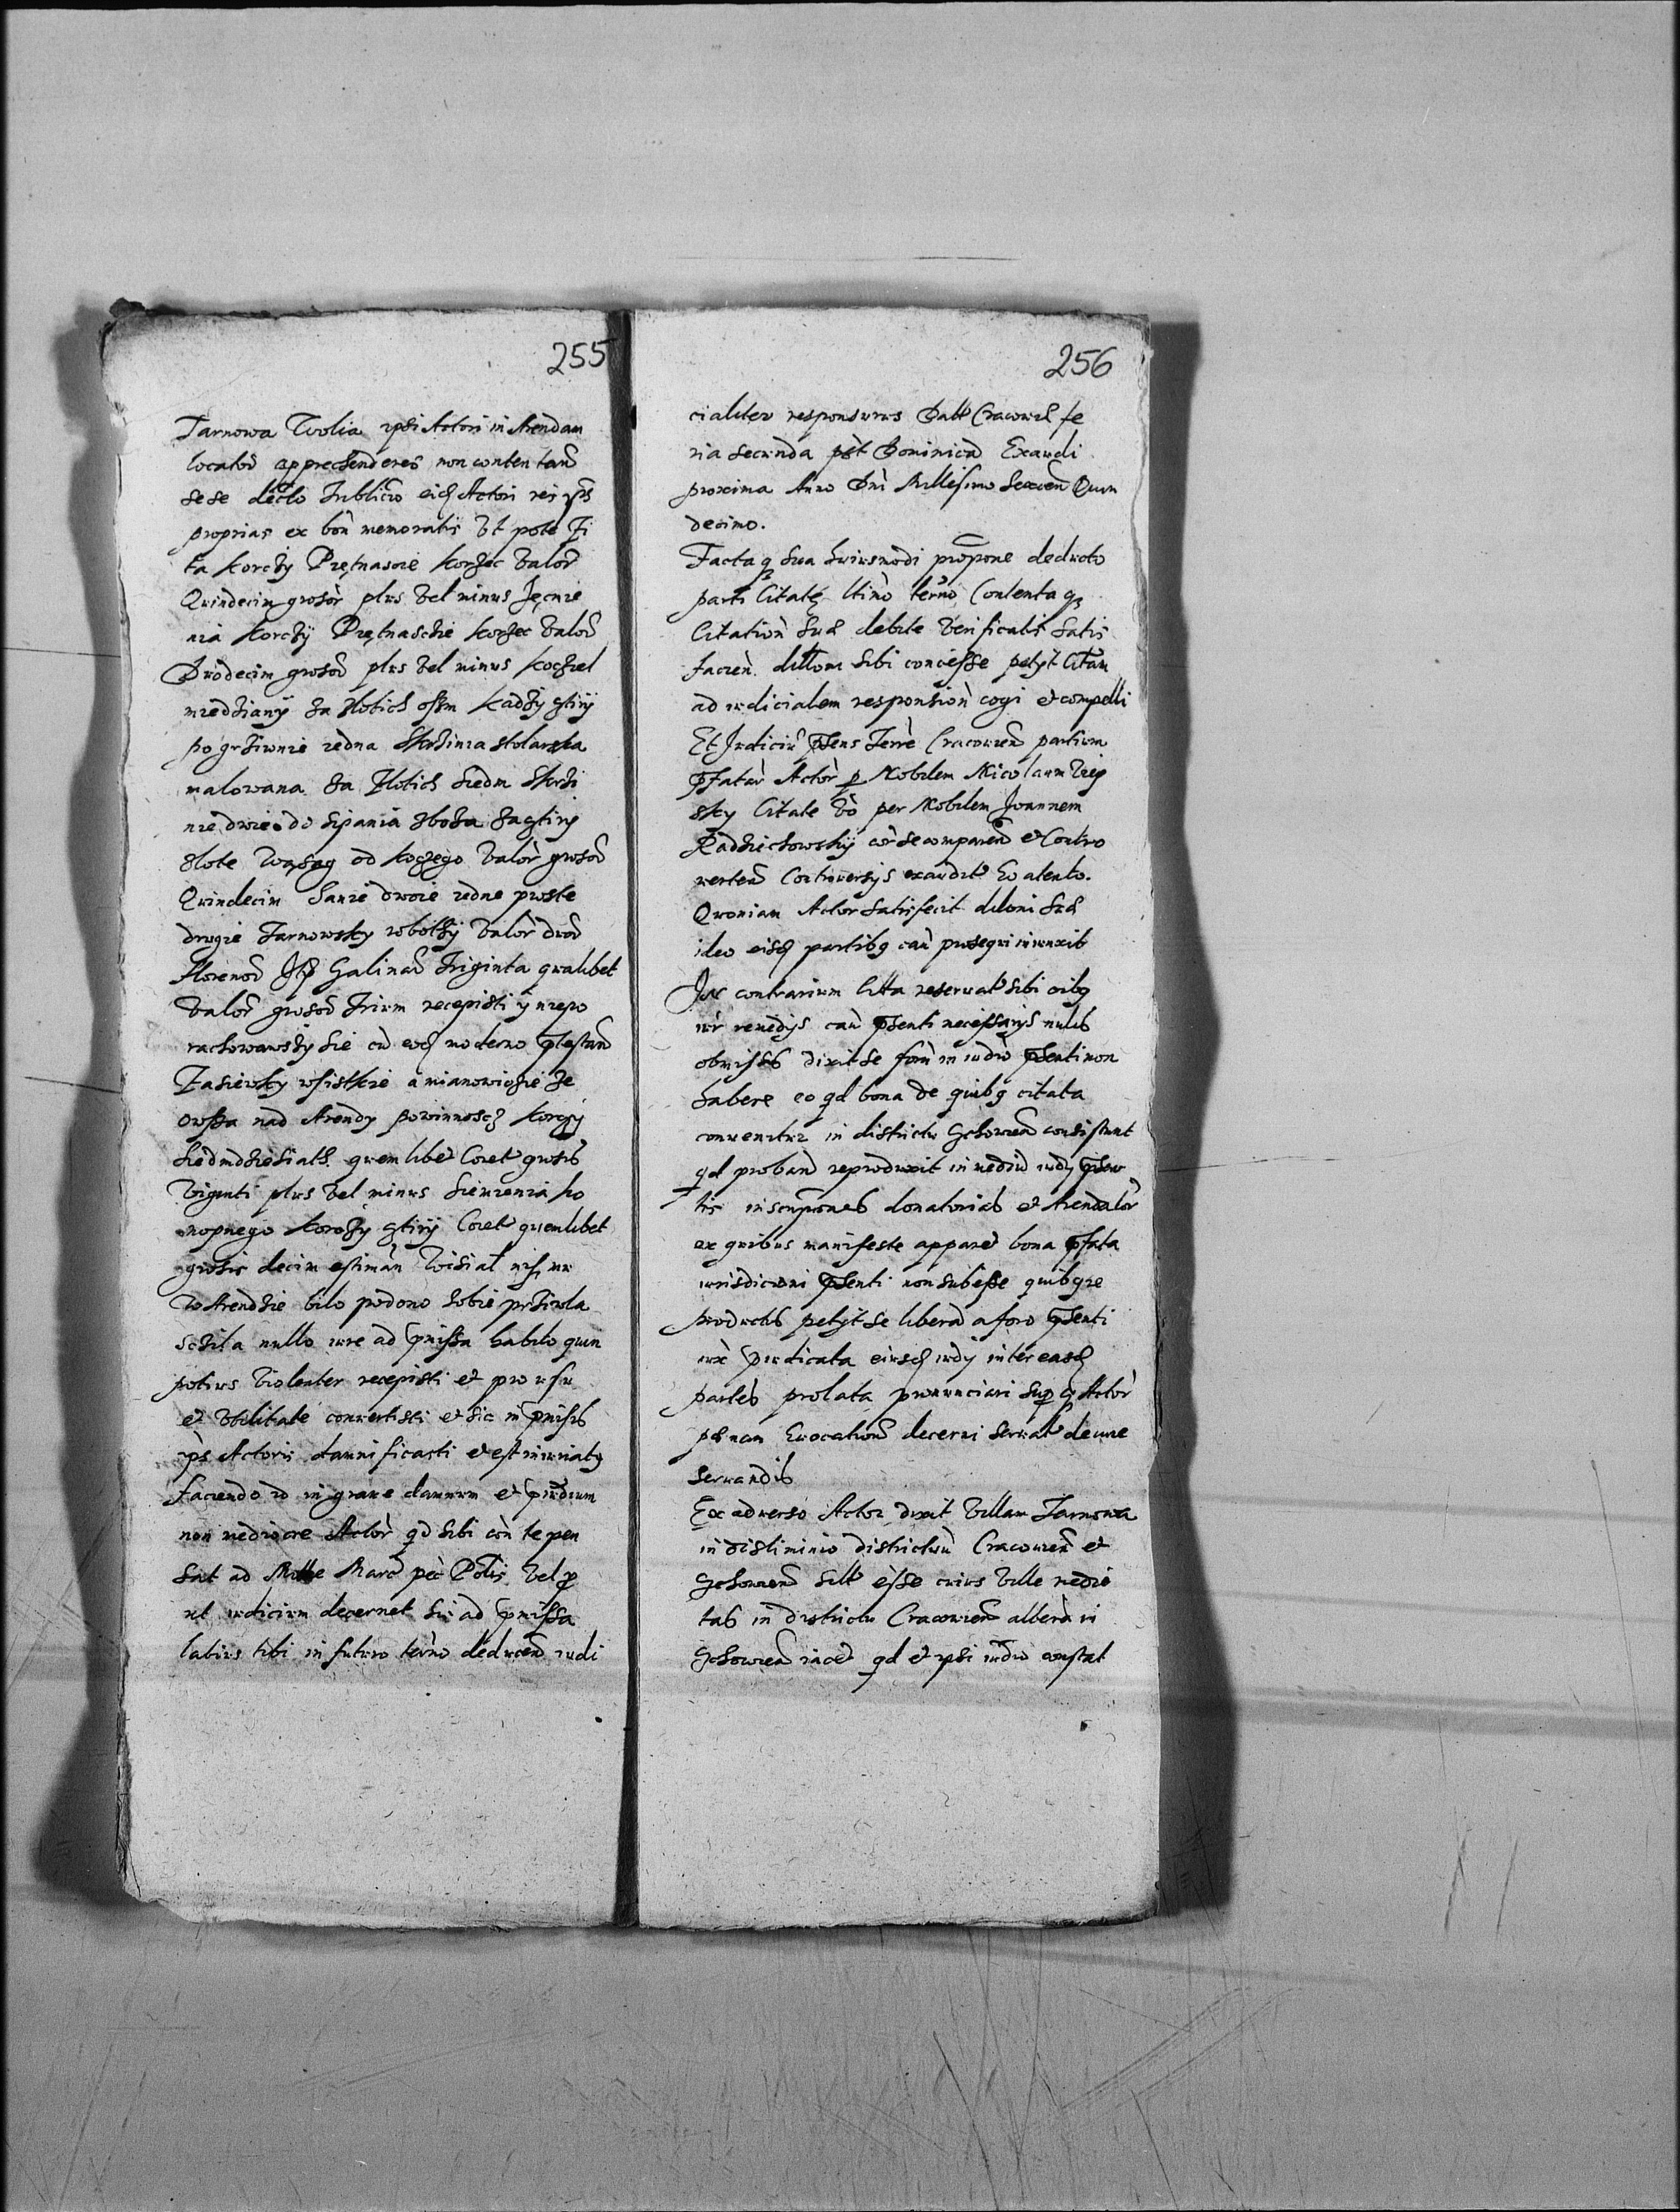 255
Tarnowa Wolia ipsi Actori in Arendam
locatoꝝ apprehenderes non contentand
sese dicto eidē Actori res ips
proprias ex bon memoratis Vt pote Zi
ta korczy Piętnascie korzec valoꝝ
Quindecim grosoꝝ plus vel minus Jęcmie
nia korczÿ Piętnasczie korzec valoꝝ
Duodecim grosoꝝ plus vel minus koczel
miedzianÿ za złotich osm kadzÿ cztirÿ
po grziwnie iedna skrzinia stolarska
malowana za złotich siedm skrzi
nie dwie do sipania zboza za cztirÿ
zlote Wasąg od koczego valoꝝ grosoꝝ
Quindecim Sanie dwoie iedne proste
drugie Tarnowskÿ robothÿ valoꝝ duoꝝ
florenoꝝ Itē Galinaꝝ Triginta qualibet
valoꝝ grosoꝝ trium recepisti ÿ niepo
rachowawszÿ sie cū eodē moderno
Zasiewkÿ wsistkie a mianowiczie ze
owssa nad Arendy powinnosczi korczÿ
siedmdziesiąth quemlibet Coret grosis
viginti plus vel minus Siemienia ko
nopnego korczÿ cztirÿ Coret quemlibet
grosis decim estiman wisiał
W Arendzie bilo podono sobie prziwla
scził a nullo iure ad p̄missa habito quin
potius violenter recepisti et pro usu
et vtilitate conuertisti et sic in p̄missis
ips Actoris damnificasti et est iniuriatꝫ
faciendo id in graue damnum et p̄iudium
non mediocre Actoꝝ qd sibi con te pen
sat ad Mille Marc pec Polis vel p
ut iudicium decernet sic ad p̄missa
latius tibi in futuro termo deducen iudi
256
cialiter responsurus Datt Cracouiæ fe
ria secunda post Dominicā Exaudi
proxima Anno Dni Millesimo Sexcen Quin
decimo.
Factaqꝫ sua huiusmodi propone deducto
parti Citatę ltimo termo Contentaqꝫ
Citation suæ debite verificatis satis
facien dillom sibi concesse petyt Citām
ad iudicialem responsion cogi et compelli
Et Judiciū p̄sens Terre Cracouien partium
p̄fatar Actor p Nobilem Nicolaum
Citate vo per Nobilem Joannem
Radzichowskÿ cor se comparen et Contro
uerten Controuersÿs exaudit Eo atento.
Quoniam Actor satisfecit diloni suæ
ideo eisdē partibꝫ cau prosequi iniunxit
In contrarium Citta reseruat sibi oibꝫ
iur remedÿs cau p̄senti necessarÿs nullis
obmissis dixit se forū in iudio p̄senti non
habere eo qd bona de quibꝫ citata
conuenitur in districtu Xchouien consistunt
qd proband reproduxit in mediū iudÿ
tis inscripiones donatorias et Arendator
ex quibus manifeste apparet bona p̄fata
iurisdicioni p̄senti non subesse quibꝫ re
productis petyt se liberā a foro p̄senti
iux p̄iudicata eiusdē iudÿ inter easdē
partes prolata pronunciari sup qꝫ Actor
pænam Euocation decerni seruat de iure
seruandis
Ex aduerso Actor dixit Villam Tarnowa
in distiminio districtuū Cracouien et
Xchouien sitt esse cuius Ville medie
tas in districtu Cracouien altera vi
Xchouien iacet qd et ipsi iudio constat